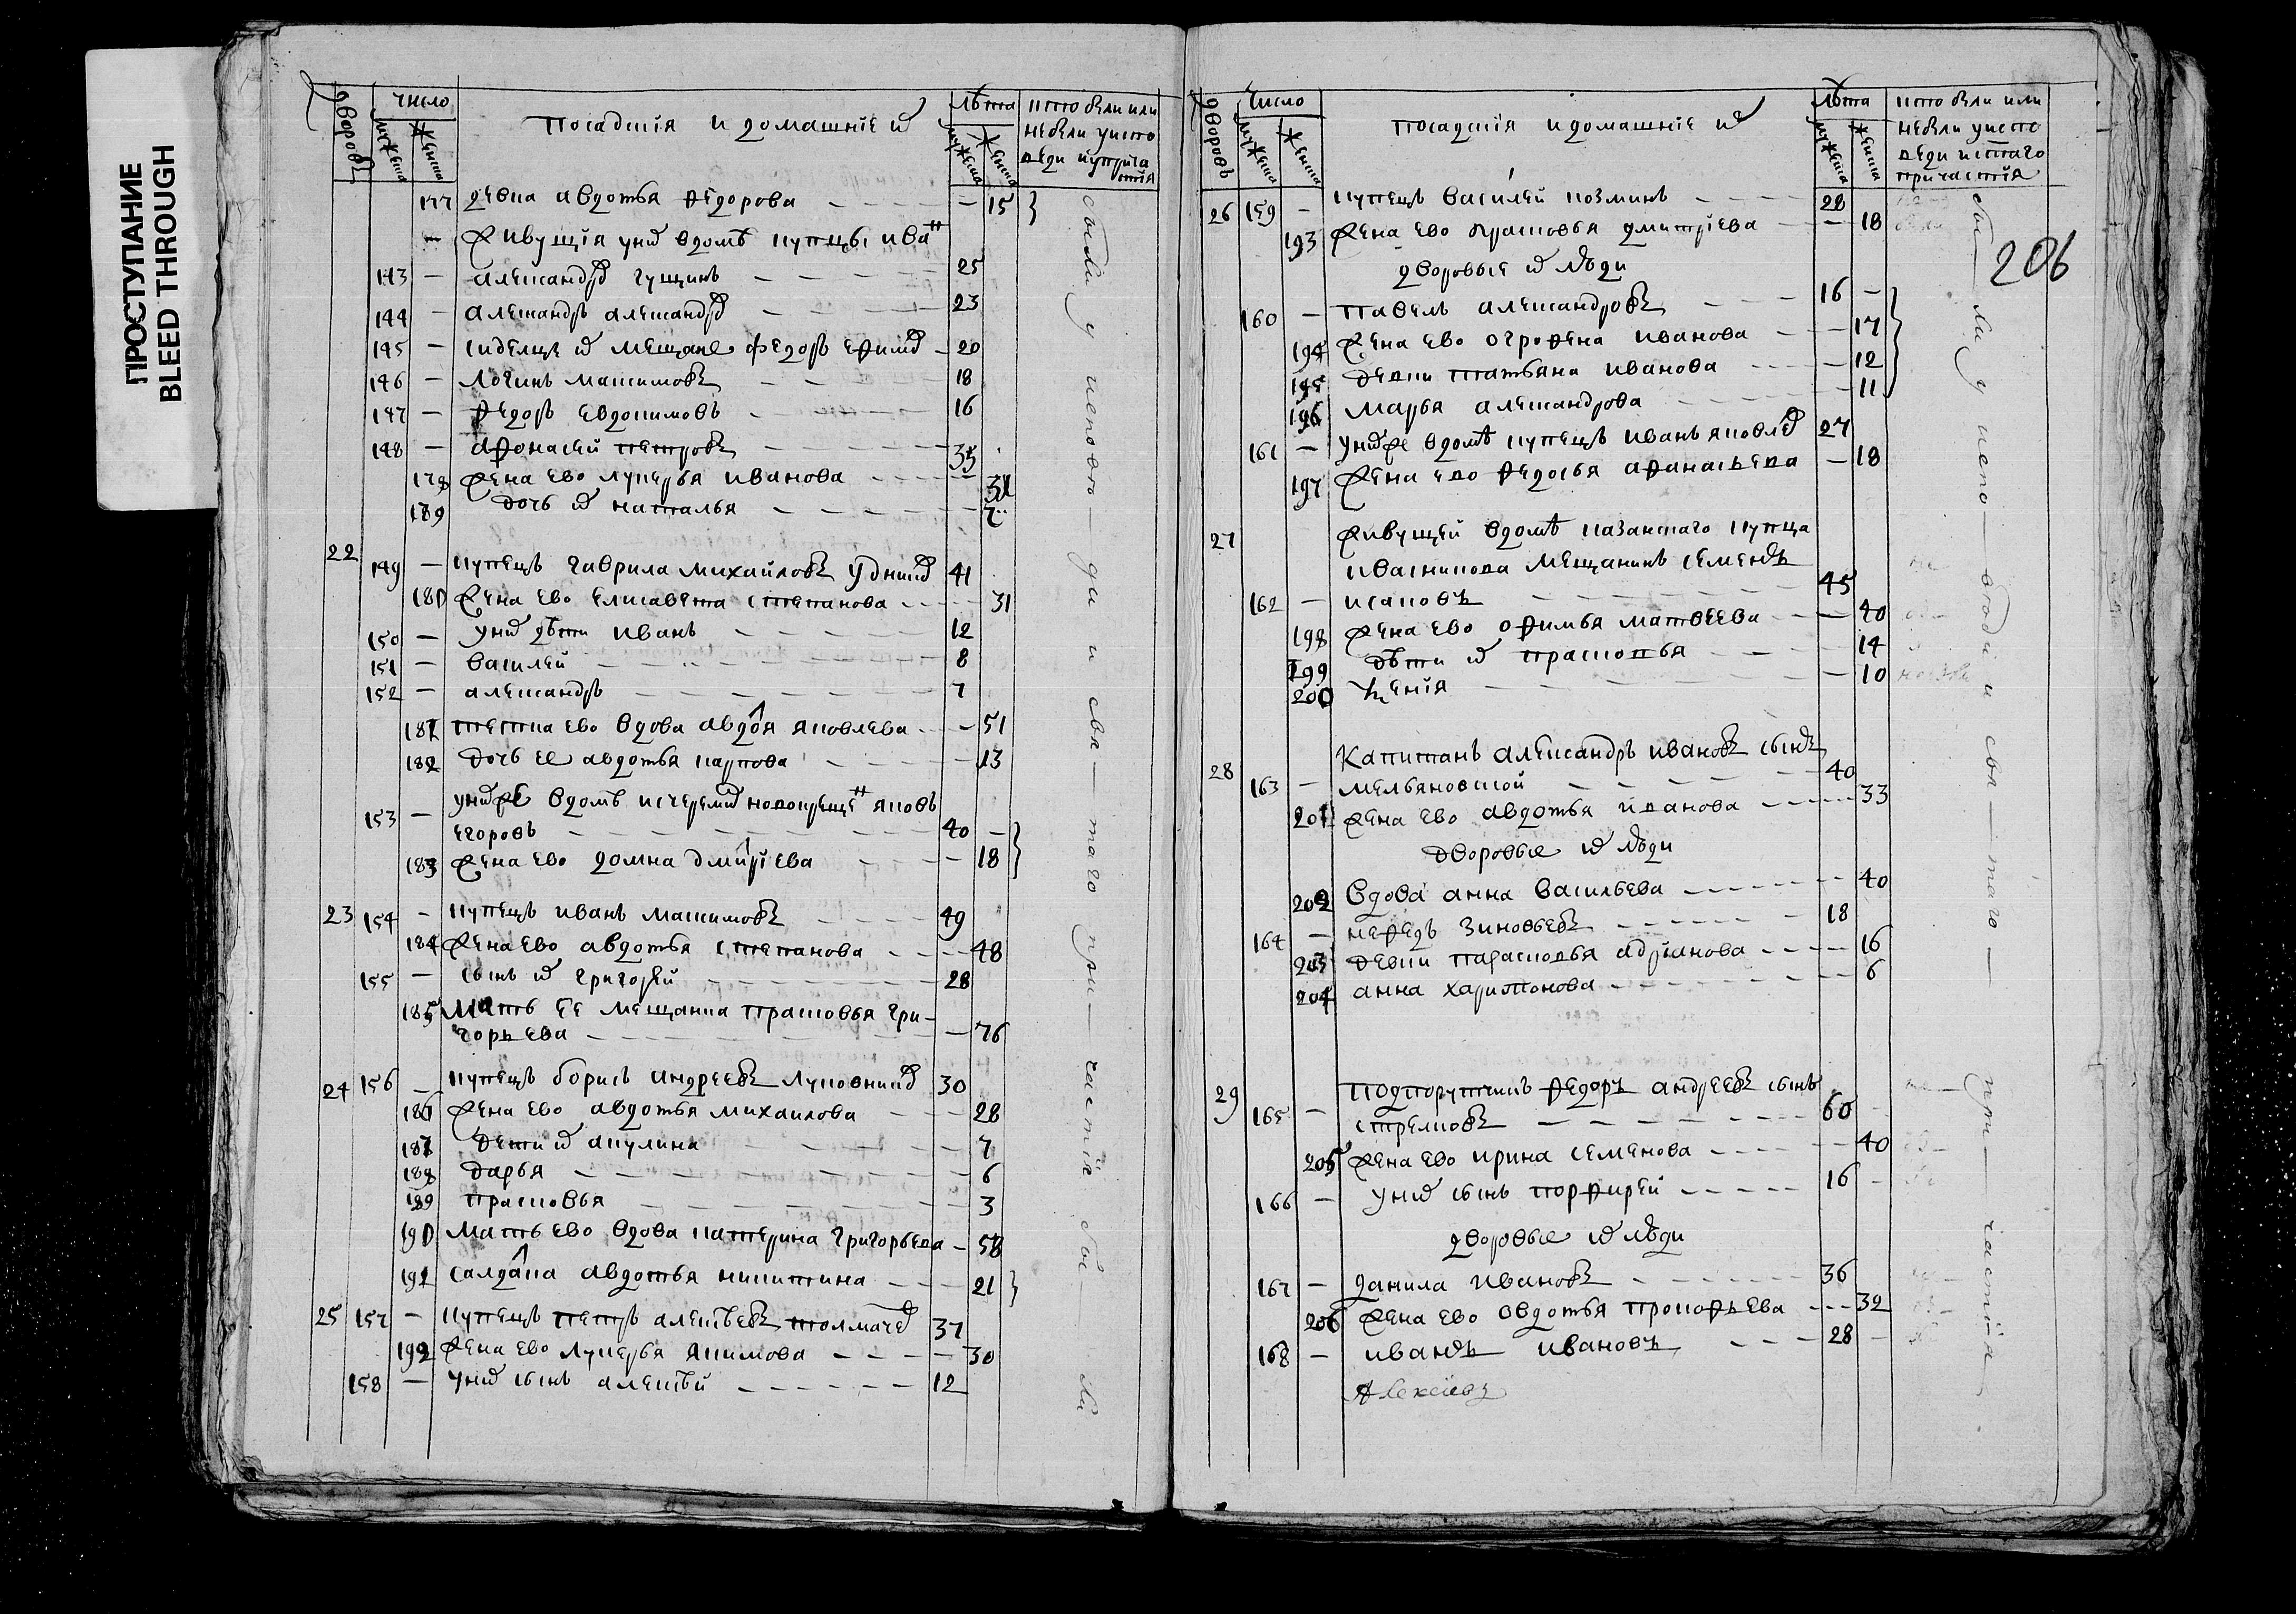 ПРОСТУПАНИЕ
BLEED THROUGH
дворовъ
число
мужеска
женска
посадскія и домашніе их
лѣта
мужеска
женска
кто были или
небыли уиспо
веди иуприча
стія
177 девка авдотья федорова — 15
живущія уних вдомѣ купцы ива
173 — александр гущинъ — 25
174 — александръ александр — 23
175 — сиделцы их мещане федоръ ефим — 20
176 — логинъ максимовъ — 18
177 — федоръ евдокимовъ — 16
178 — афонасей петровъ — 35
178 жена ево лукерья иванова —
189 дочь их наталья —
22 149 — купецъ гаврила михайловъ 41
180 жена ево елисавета степанова — 31
150 — уних дѣти иванъ — 12
151 — василей — 8
152 — александръ — 7
181 тетка ево вдова авдоя яковлева — 51
182 дочь ее авдотья карпова — 13
153 — унихже вдомѣ новокреще яковъ
егоровъ — 40
183 жена ево домна дмитріева — 18
23 154 — купецъ иванъ максимовъ — 49
184 жена ево авдотья степанова — 48
155 — сынъ их григорей — 28
185 мать ее мещанка прасковья гри-
горьева — 76
24 156 — купецъ борисъ андреевъ луковник 30
186 жена ево авдотья михаилова — 28
187 дети их акулина — 7
188 дарья — 6
189 прасковья — 3
190 мать ево вдова катерина григорьева — 58
191 салдатка авдотья никитина — 21
25 157 — купецъ петръ алексѣевъ толмачев 37
192 жена ево лукерья якимова — 30
158 — уних сынъ алексѣй — 12
были у исповѣ — ди и свя — таго при — частіе бы — ли
дворовъ
число
мужеска
женска
посадскія идомашніе их
лѣта
мужеска
женска
кто были или
небыли уиспо
веди истаго
причастія
206
26 159 — купецъ василей козминъ — 28
193 жена ево прасковья дмитріева — 18
дворовые их люди
160 — павелъ александровъ — 16 —
194 жена ево огрофена иванова — 17
195 девки татьяна иванова — 12
196 марья александрова — 11
161 — унихже вдомѣ купецъ иванъ яковлев 27
197 жена ево федосья афанасьева — 18
27 живущей вдомѣ казанскаго купца
ивасникова мещанинъ семенъ
162 — исаковъ — 45
198 жена ево офимья матвеева — 40
199 дѣти их прасковья — 14
200 ксенія — 10
28 капитанъ александръ ивановъ сынъ
163 — мельяновской — 40
201 жена ево авдотья иванова — 33
дворовые их люди
202 вдова анна васильева — 40
164 — нефедъ зиновьевъ — 18
203 девки парасковья адріанова — 16
204 анна харитонова — 6
29 подпорутчикъ федоръ андреевъ сынъ
165 — стрелковъ — 60
205 жена ево ирина семенова — 40
166 — уних сынъ порфирей — 16 —
дворовые их люди
167 — данила ивановъ — 36
206 жена ево овдотья прокофьева — 32
168 — иванъ ивановъ — 28 —
Алексѣевъ
бы — ли у испо — вѣди и свя — таго — при — частія